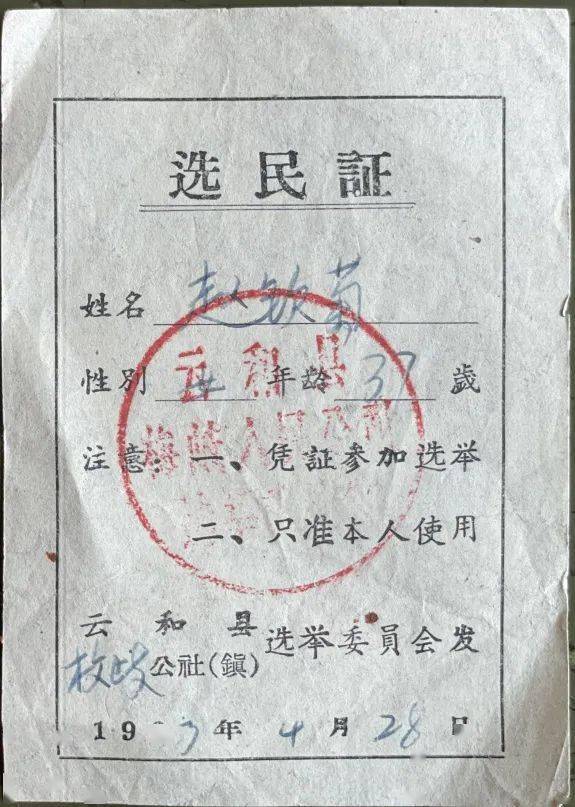 选民証
姓名 赵钦菊
性别 女 年龄 37 歲
注意：一、凭証参加选举
二、只准本人使用
云和县
公社(鎮)选举委員会发
19 3年4月28日
云和县